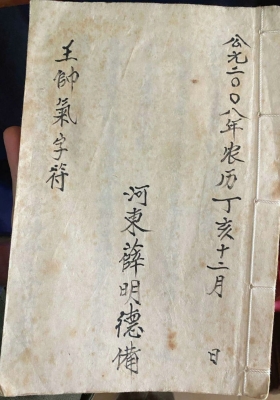 公元二〇〇八年农历丁亥十二月　日
河東薛明德備
王帥氣字符